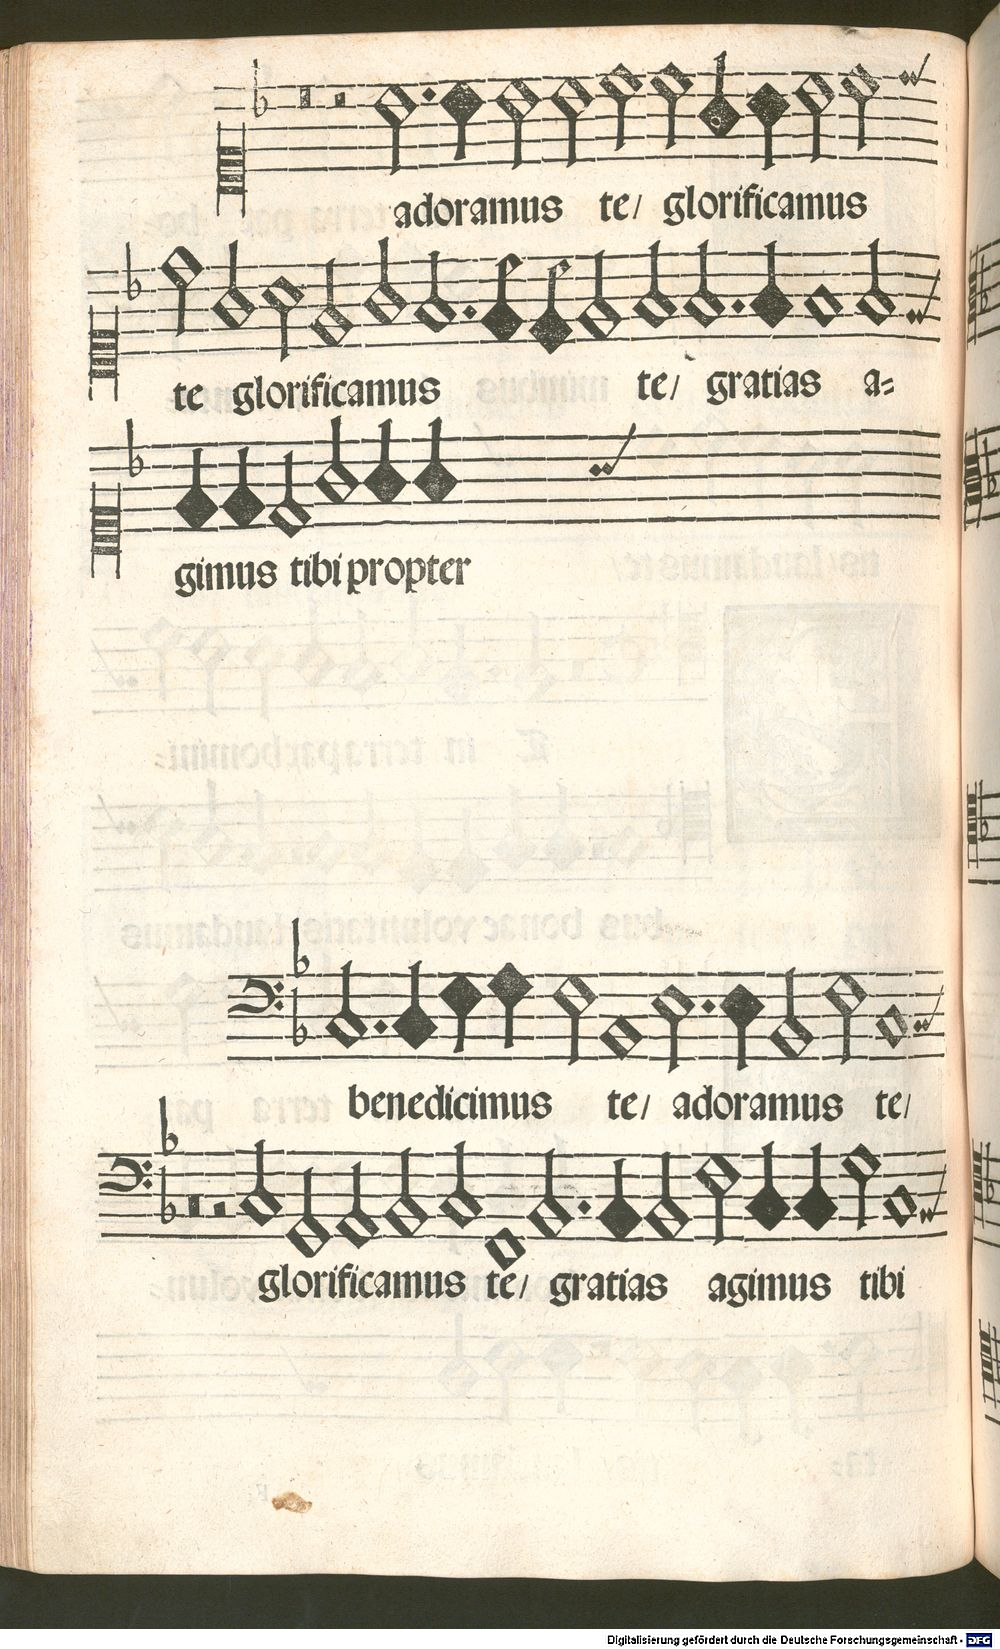 adoramus te/ glorificamus
te glorificamus te/ gratias a=
gimus tibi propter
benedicimus te/ adoramus te/
glorificamus te/ gratias agimus tibi
Digitalisierung gefördert durch die Deutsche Forschungsgemeinschaft - DFG